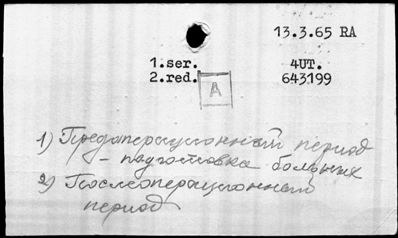 13.3.65 RA
1.ser. 4UT.
2.red. A 643199
1) Предоперационный период
- подготовка больных
2) Послеоперационный
период